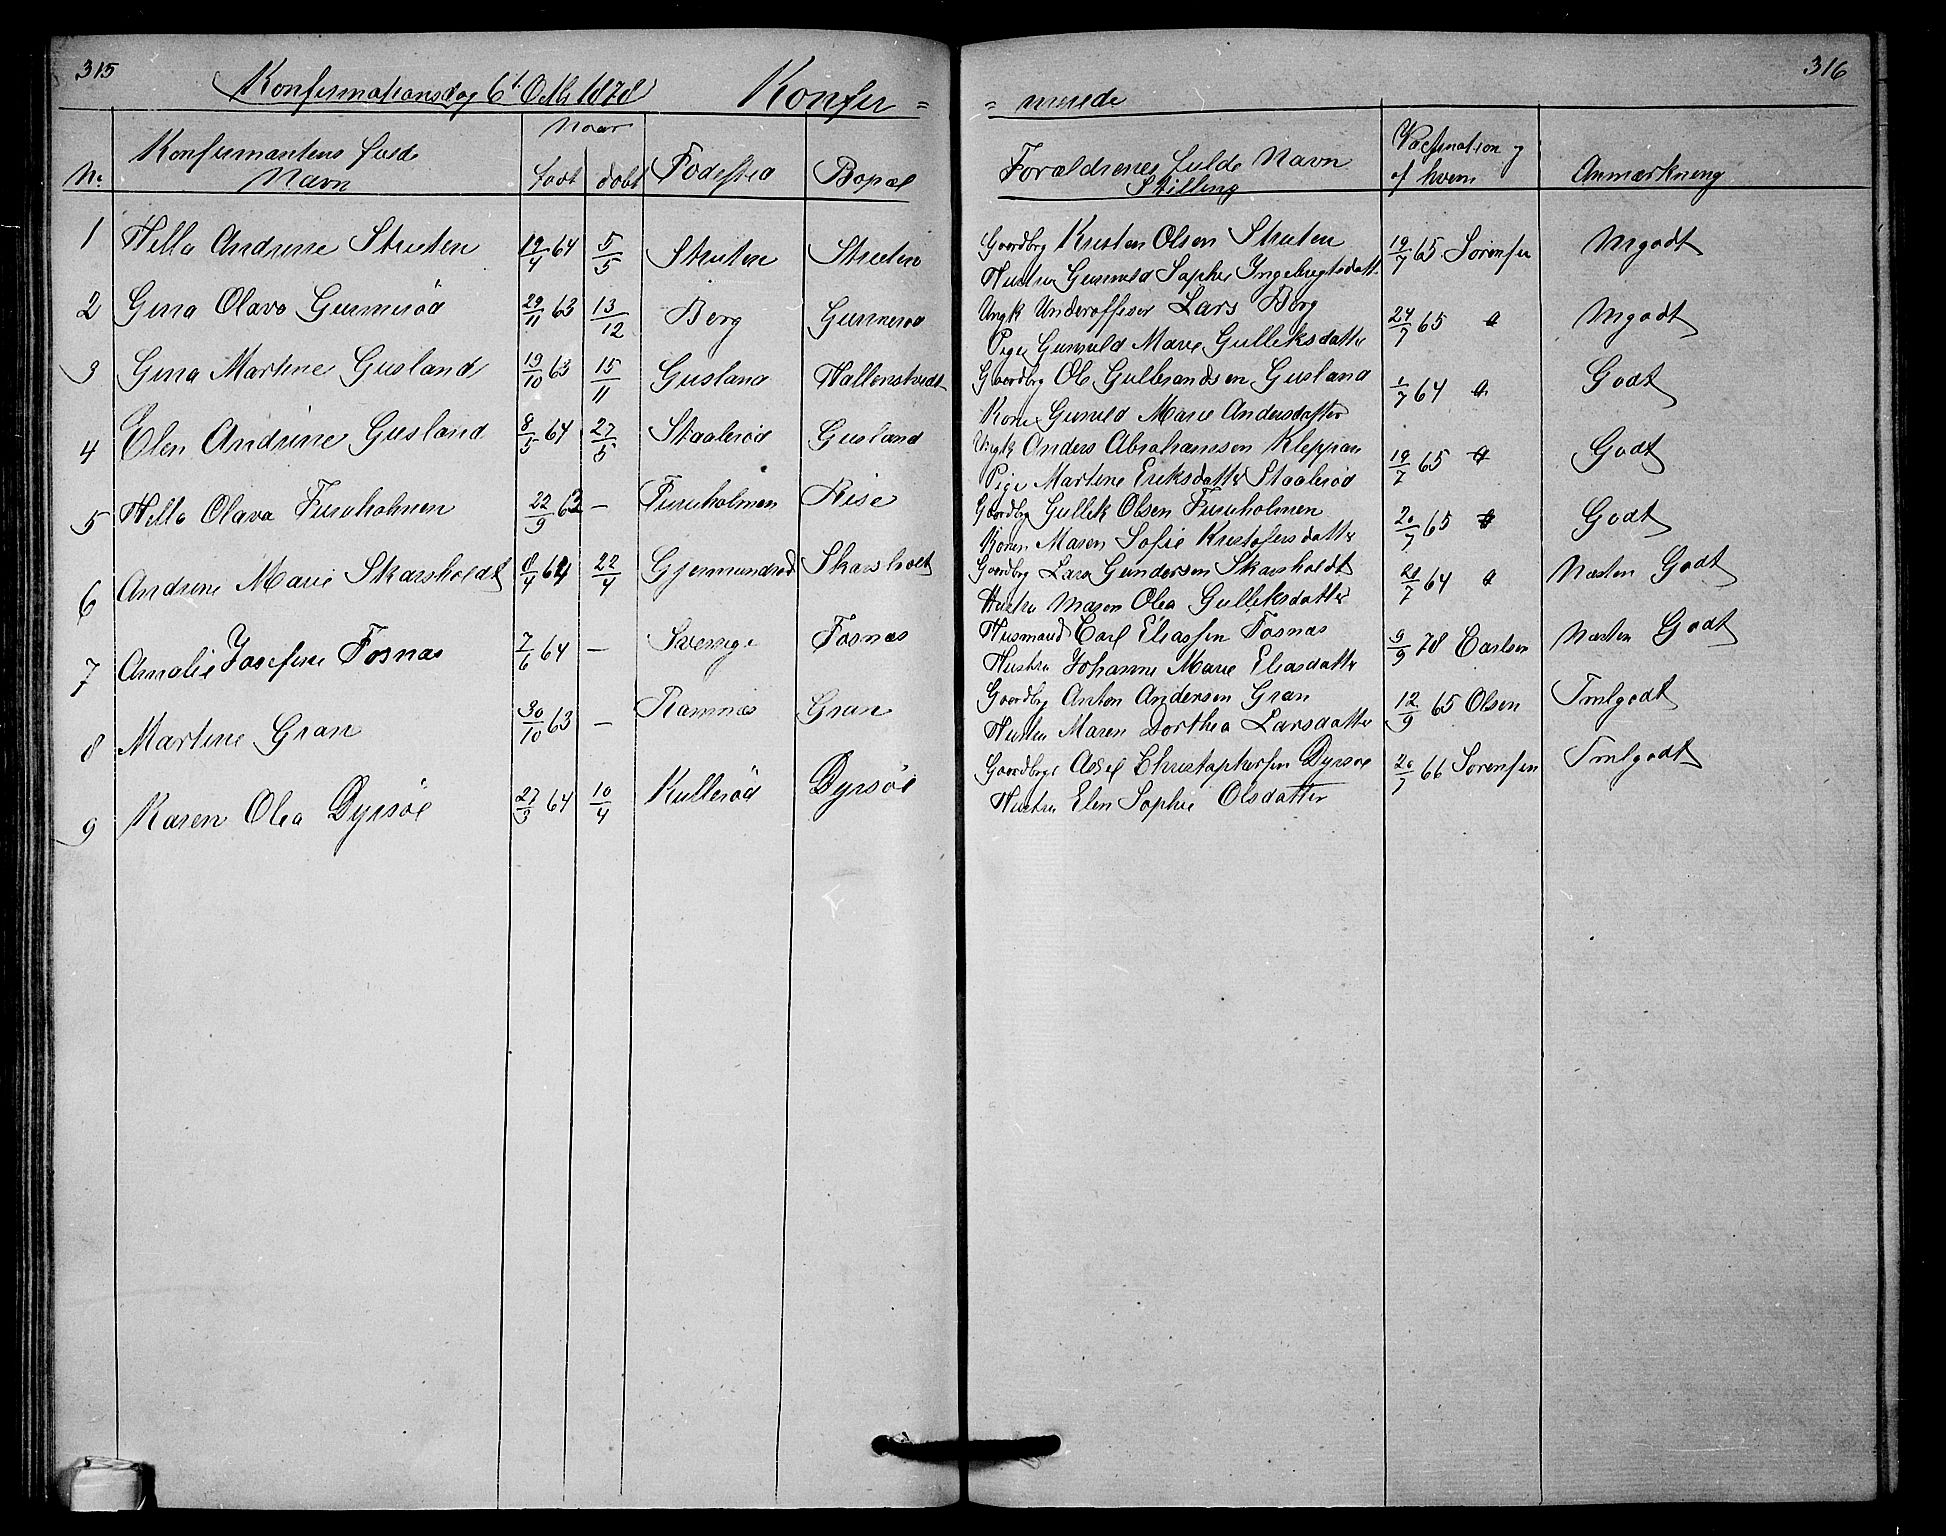 315
Konfirmationsdag 6t Octbr 1878
Konfer =
Naar
No
Konfirmantens fulde
Navn
født
døbt
Fødested
Bopæl
1 Hella Andrine Struten 19/4 64 5/5 Struten Struten
2 Gina Olava Gunnerød 29/11 63 13/12 Berg Gunnerød
3 Gina Martine Gusland 19/10 63 15/11 Gusland Hallenstvedt
4 Elen Andrine Gusland 8/5 64 27/5 Staalerød Gusland
5 Hella Olava Furuholmen 22/9 63 — Furuholmen Riise
6 Andrine Marie Skarsholdt 8/4 64 22/4 Gjermundrød Skarsholt
7 Amalie Josefine Fosnæs 7/6 64 — Sverrige Fosnæs
8 Martine Gran 30/10 63 — Ramnæs Gran
9 Karen Olea Dyrsøe 27/3 64 10/4 Kullerød Dyrsøe
316
= merede
Forældrenes fulde Navn
Stilling
Vaccination og
af hvem
Anmærkning
Gaardbrg Kristen Olsen Struten 19/7 65 Sørensen Mgodt
Hustru Gunnild Sophie Ingebregtsdatt
Ungk Underofficer Lars Berg 24/7 65 " Mgodt
Pige Gunnild Marie Gulleksdatter
Gaardbrg Ole Gulbrandsen Gusland 1/7 64 " Godt
Kone Gunild Marie Andersdatter
Ungk Anders Abrahamsen Kleppan 19/7 65 " Godt
Pige Martine Eriksdatter Staalerød
Gaardbrg Gullik Olsen Furuholmen 20/7 65 " Godt
Konen Maren Sofie Kristofersdatter
Gaardbrg Lars Gundersen Skarsholdt 20/7 64 " Næsten Godt
Hustru Maren Olea Gulliksdatter
Husmand Carl Eliassen Fosnæs 9/9 78 Carlsen Næsten Godt
Hustru Johanne Marie Eliasdatter
Gaardbrg Anton Andersen Gran 12/9 65 Olsen Tmlgodt
Hustru Maren Dorthea Larsdatter
Gaardbrgr Axel Christophersen Dyrsøe 20/7 66 Sørensen Tmlgodt
Hustru Elen Sophie Olsdatter